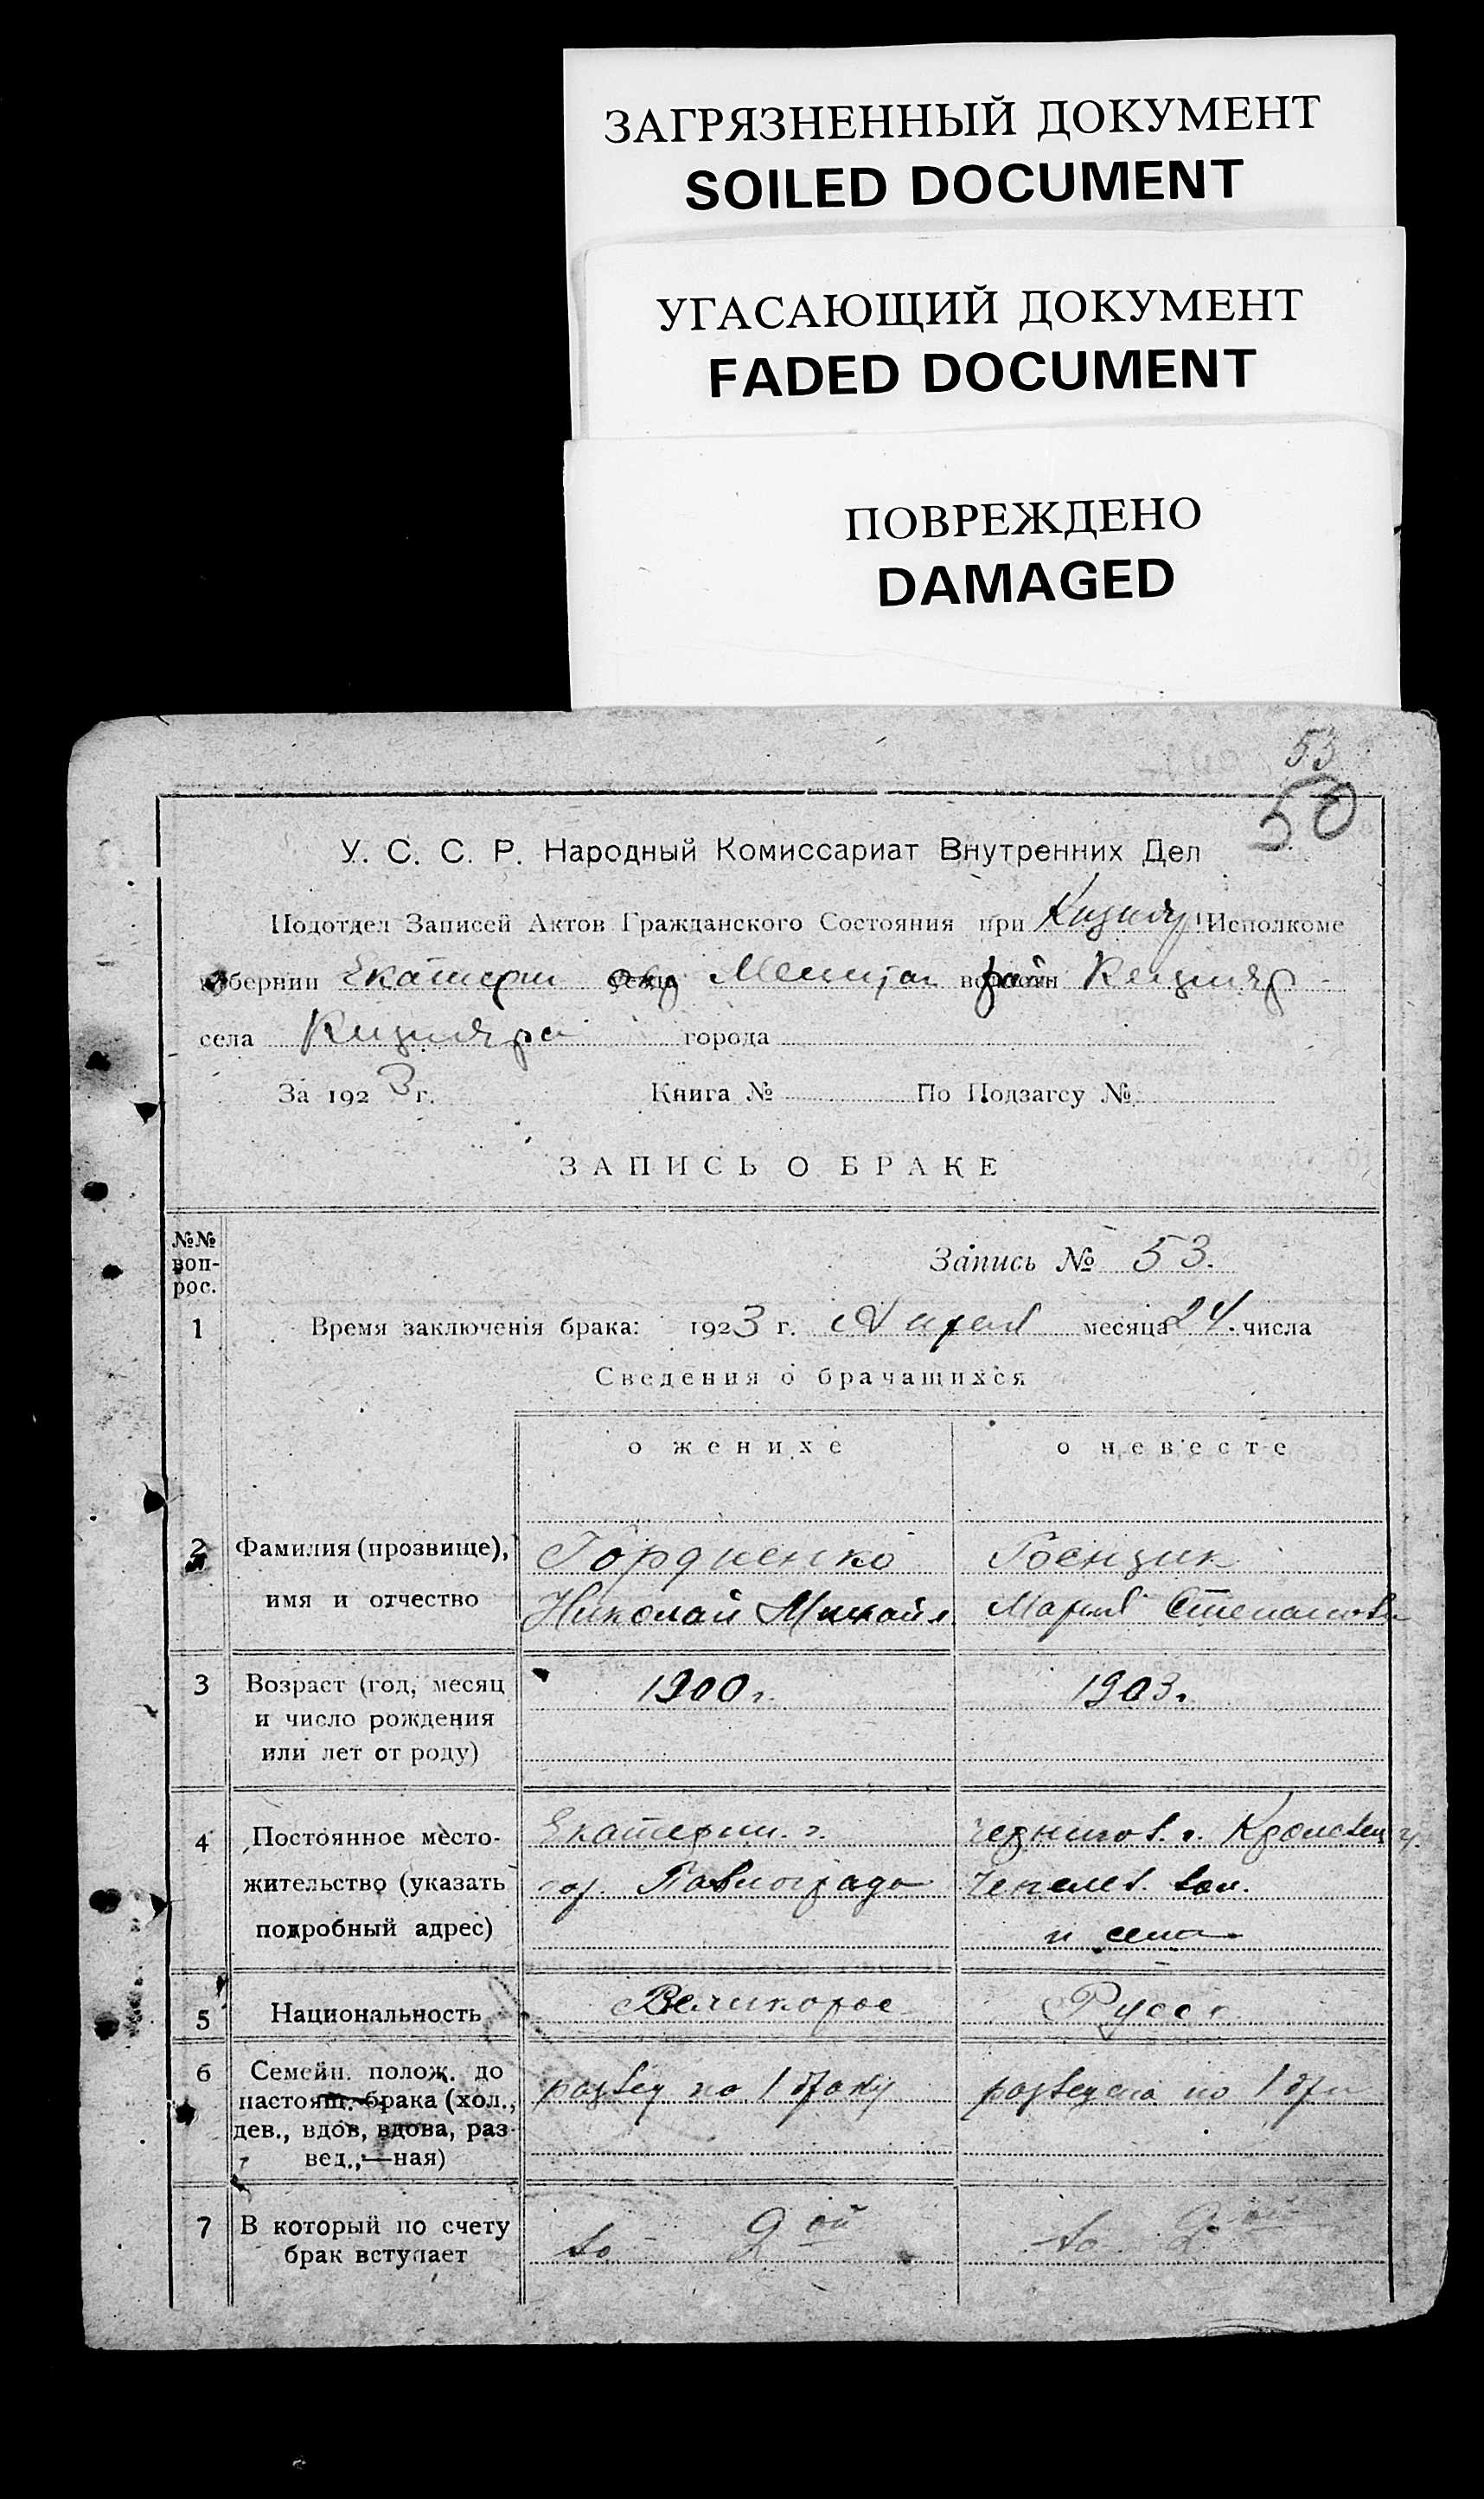 ЗАГРЯЗНЕННЫЙ ДОКУМЕНТ
SOILED DOCUMENT
УГАСАЮЩИЙ ДОКУМЕНТ
FADED DOCUMENT
ПОВРЕЖДЕНО
DAMAGED
53
50
У. С. С. Р. Народный Комиссариат Внутренних Дел
Подотдел Записей Актов Гражданского Состояния при Исполкоме
губернии Екатерин окр волости
села города
За 1923 г. Книга № По Подзагсу №
ЗАПИСЬ О БРАКЕ
№№ воп-рос.
Запись № 53.
1 Время заключенія брака: 1923 г. Апреля месяца 24. числа
Сведения о брачащихся
о женихе о невесте
2 Фамилия (прозвище), Гордиенко
имя и отчество Николай Михайл. Мария Степановн
3 Возраст (год, месяц 1900 г. 1903 г.
и число рождения
или лет от роду)
4 Постоянное место- Екатерин. г. Чернигов. г. Кролевец у.
жительство (указать гор. Павлограда вол.
подробный адрес) и села
5 Национальность Великорос Русс
6 Семейн. полож. до развед по 1 браку разведена по 1 бр
настоящ. брака (хол.,
дев., вдов, вдова, раз-
вед.,—ная)
7 В который по счету во 2ой во 2ой
брак вступает